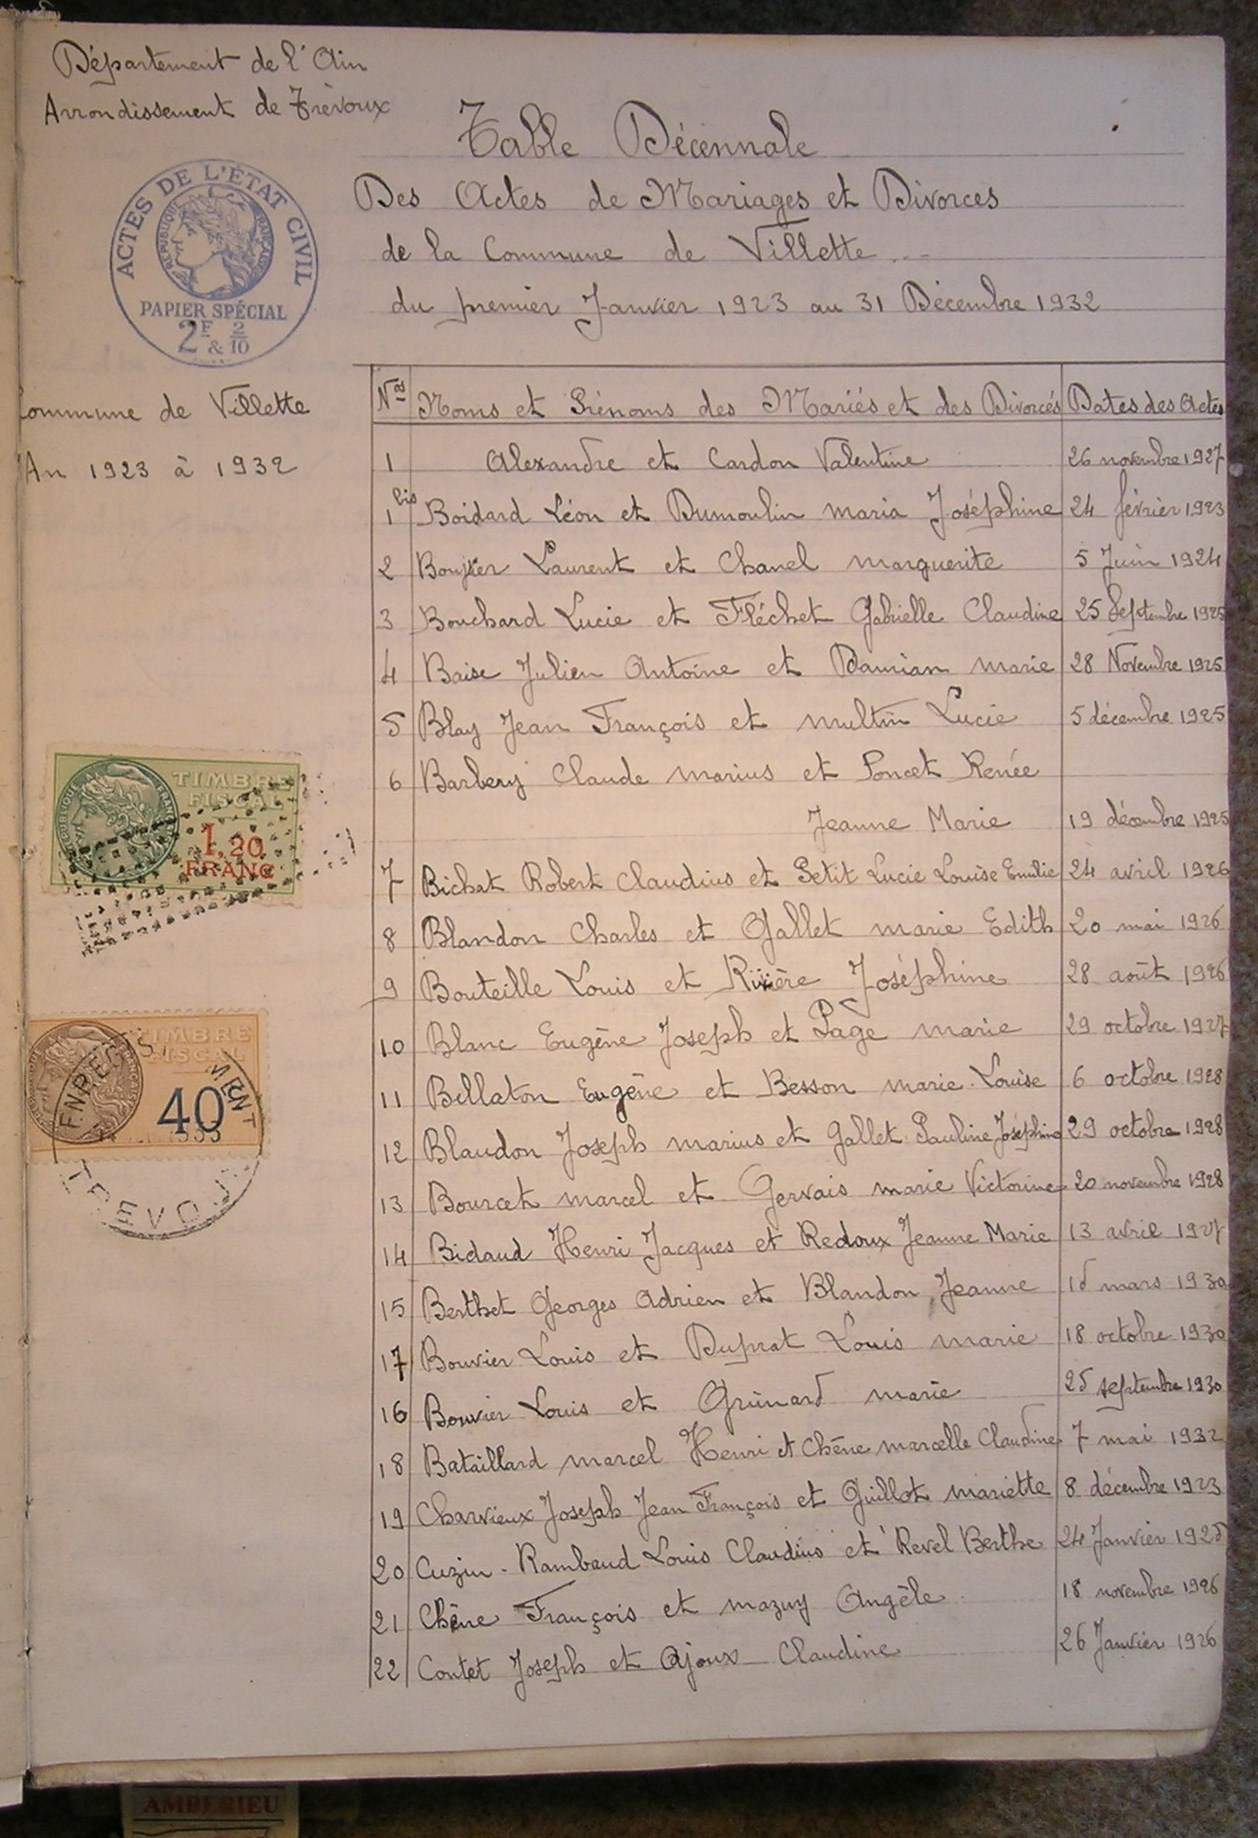 Département de l'Ain
Arrondissement de Trévoux
Table Décennale
Des Actes de Mariages et Divorces
de la Commune de Villette
du premier Janvier 1923 au 31 Décembre 1932
ACTES DE L'ÉTAT CIVIL
RÉPUBLIQUE FRANÇAISE
PAPIER SPÉCIAL
2F & 2/10
Commune de Villette
An 1923 à 1932
Nos Noms et Prénoms des Mariés et des Divorcés Dates des Actes
1 Alexandre et Cardon Valentine 26 novembre 1927
1 bis Boidard Léon et Dumoulin maria Joséphine 24 février 1923
2 Laurent et Chanel marguerite 5 Juin 1924
3 Bouchard Lucie et Fléchet Gabrielle Claudine 25 Septembre 1925
4 Baise Julien Antoine et Damian marie 28 Novembre 1925
5 Blay Jean François et multin Lucie 5 décembre 1925
6 Barbery Claude marius et Poncet Renée
Jeanne Marie 19 décembre 1925
7 Bichat Robert Claudius et Petit Lucie Louise Emilie 24 avril 1926
8 Blandon Charles et Gallet marie Edith 20 mai 1926
9 Bouteille Louis et Rivière Joséphine 28 août 1926
10 Blanc Eugène Joseph et Page marie 29 octobre 1927
11 Bellaton Eugène et Besson marie Louise 6 octobre 1928
12 Blaudon Joseph marius et Gallet Pauline Joséphine 29 octobre 1928
13 Bourcet marcel et Gervais marie Victorine 20 novembre 1928
14 Bidaud Henri Jacques et Redoux Jeanne Marie 13 avril 1927
15 Berthet Georges Adrien et Blandon Jeanne mars 1930
17 Bouvier Louis et Duprat Louis marie 18 octobre 1930
16 Bouvier Louis et marie 25 septembre 1930
18 Bataillard marcel Henri et Chêne marcelle Claudine 7 mai 1932
19 Charvieux Joseph Jean François et Guillot mariette 8 décembre 1923
20 Cuzin-Rambaud Louis Claudius et Revel Berthe 24 Janvier 1925
21 Chêne François et mazuy Angèle 18 novembre 1926
22 Contet Joseph et Ajoux Claudine 26 Janvier 1926
TIMBRE
FISCAL
1,20
FRANC
TIMBRE
FISCAL
40
AMBERIEU